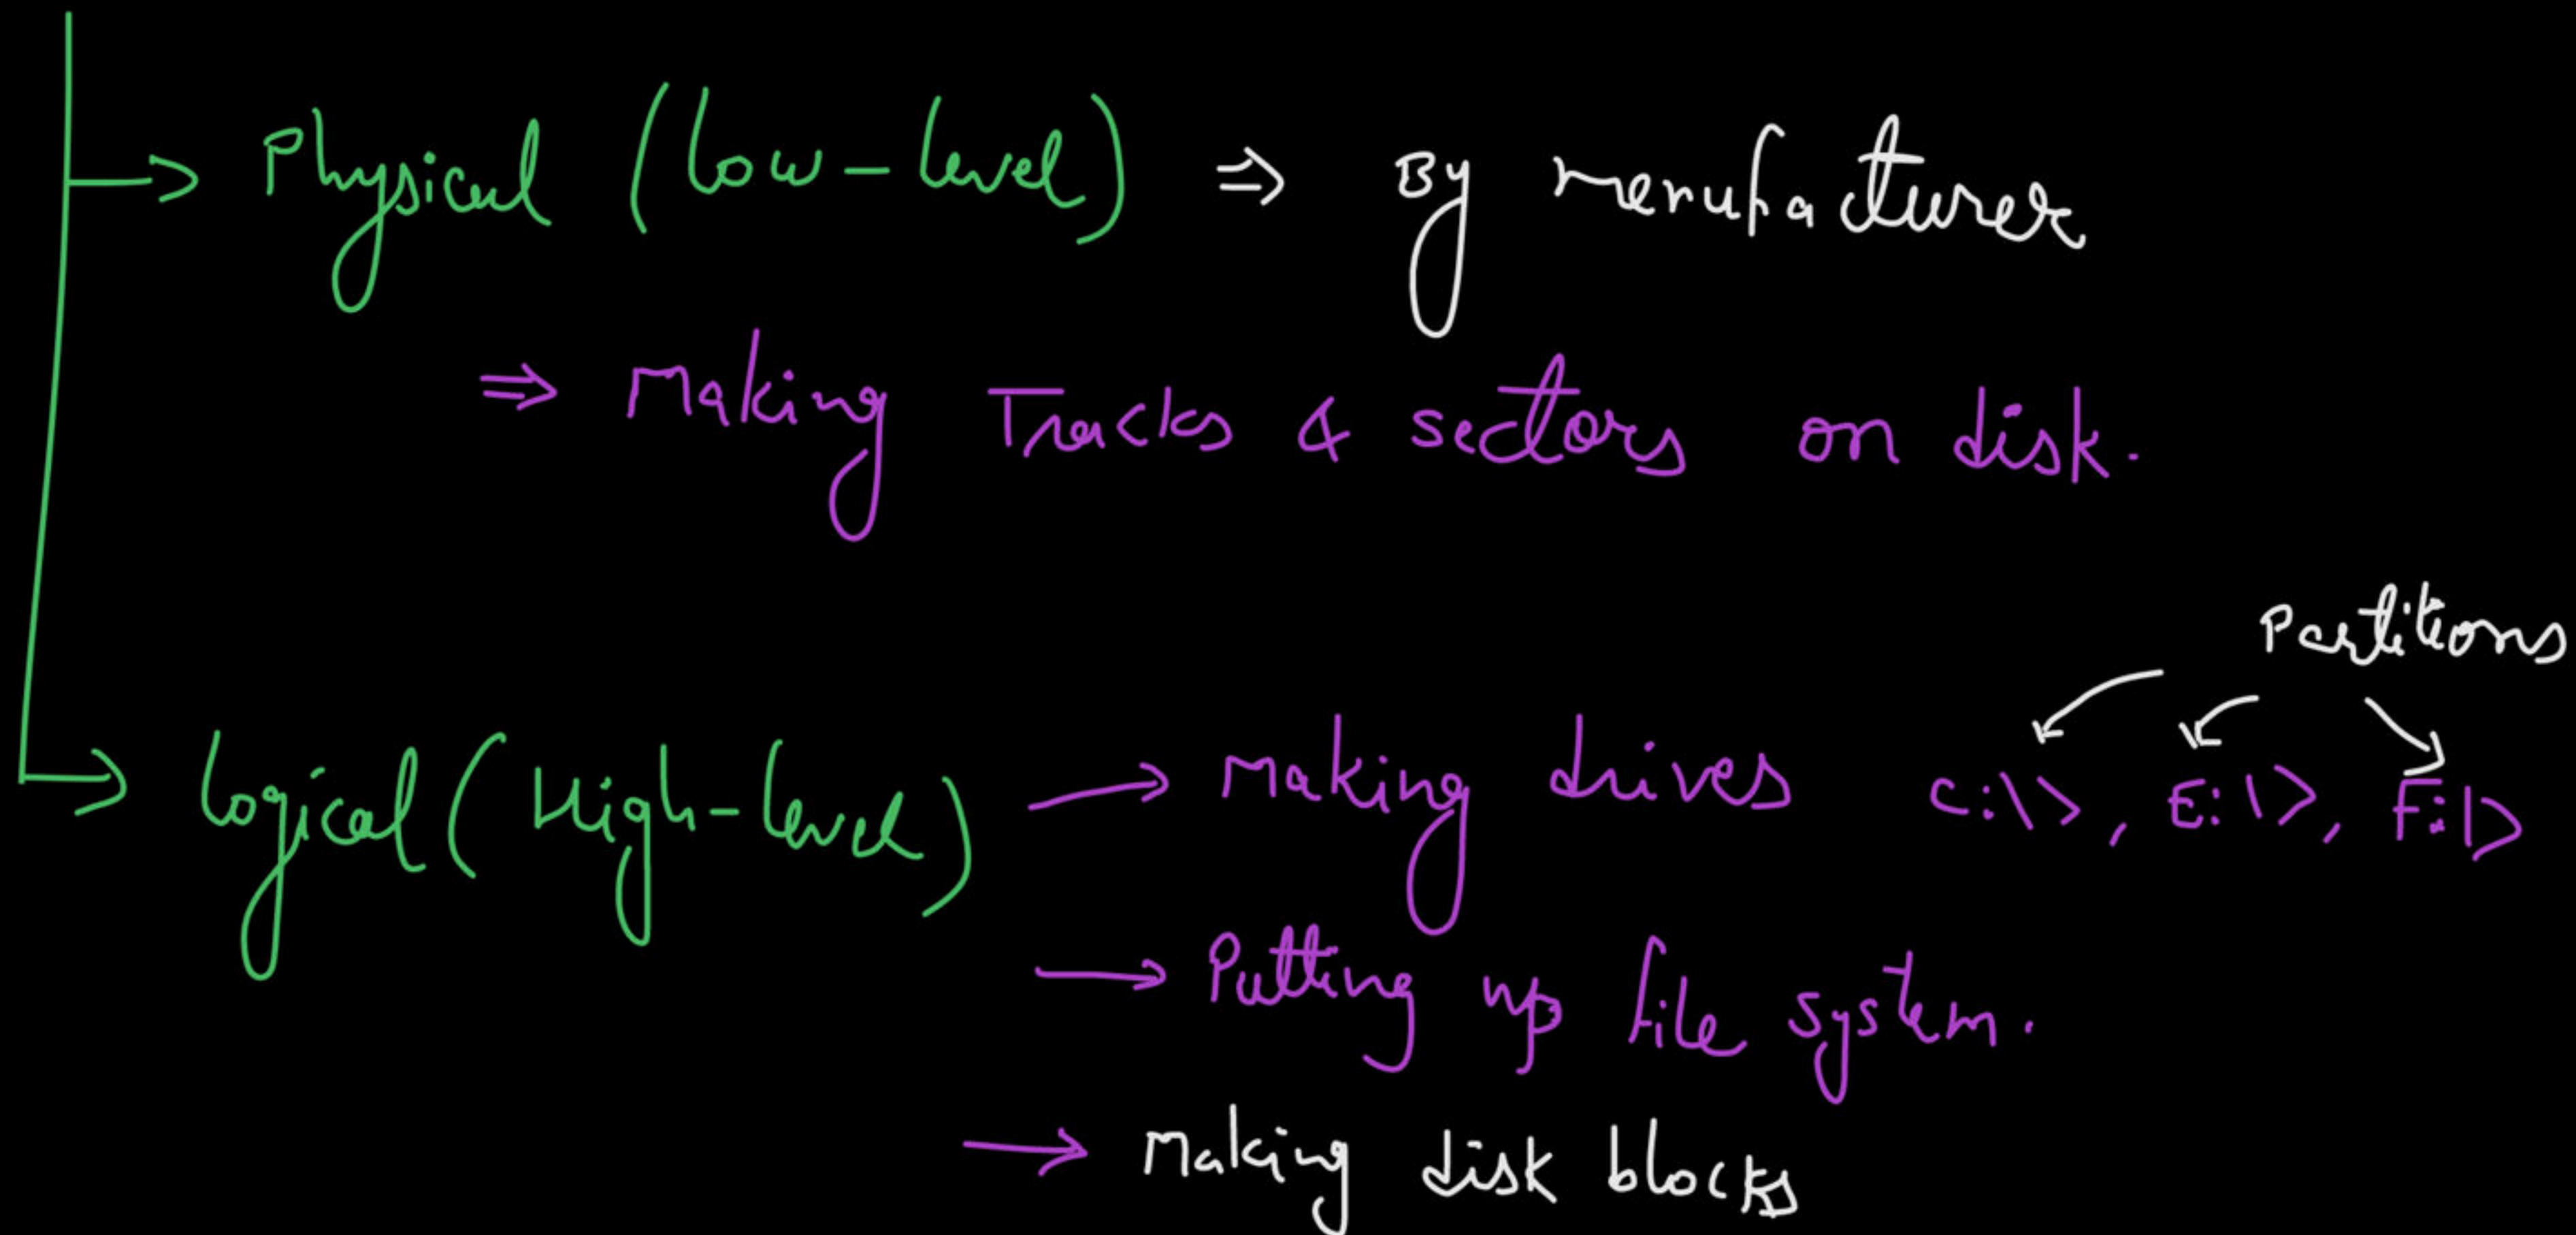 Physical (Low-level) ⇒ By menufacturer
⇒ Making Tracks & sectors on disk.
Partitions
Logical (High-level) → Making drives C:\>, E:\>, F:\>
→ Putting up file system.
→ Making disk blocks